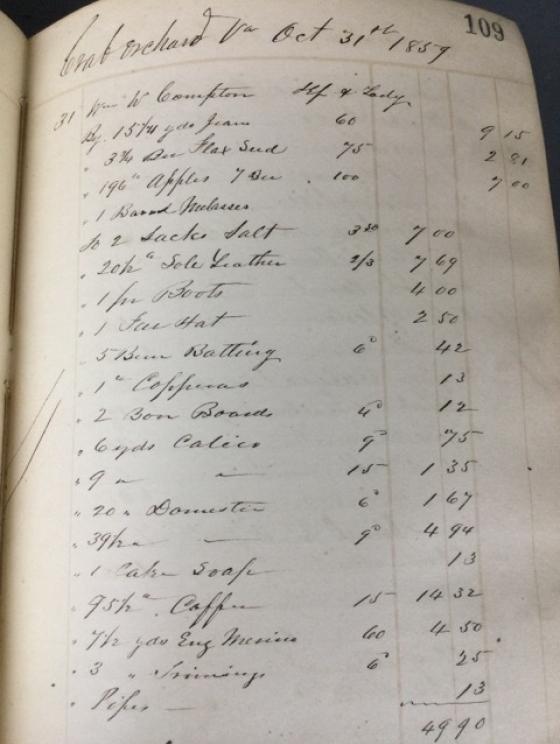 109
Crab Orchard Va Oct 31st 1859
31 Wm W Compton Hf & Lady
By 15 1/4 yds Jeans 60 9 15
" 3 3/4 Bu Flax Seed 75 2 81
" 196 " Apples 7 Bu 100 7 00
" 1 Barrel Molasses
To 2 Sacks Salt 3 50 7 00
" 20 1/2 " Sole Leather 2/3 7 69
" 1 pr Boots 4 00
" 1 Fur Hat 2 50
" 5 Batting 6d 42
" 1 " Copperas 13
" 2 Bon Boards 4d 12
" 6 yds Calico 9d 75
" 9 " — 15 1 35
" 20 " Domestic 6d 1 67
" 39 1/2 " — 9d 4 94
" 1 Cake Soap 13
" 95 1/2 " Coffee 15 14 32
" 7 1/2 yds Eng Merino 60 4 50
" 3 " Trimmings 6d 25
" Pipes — 13
49 90